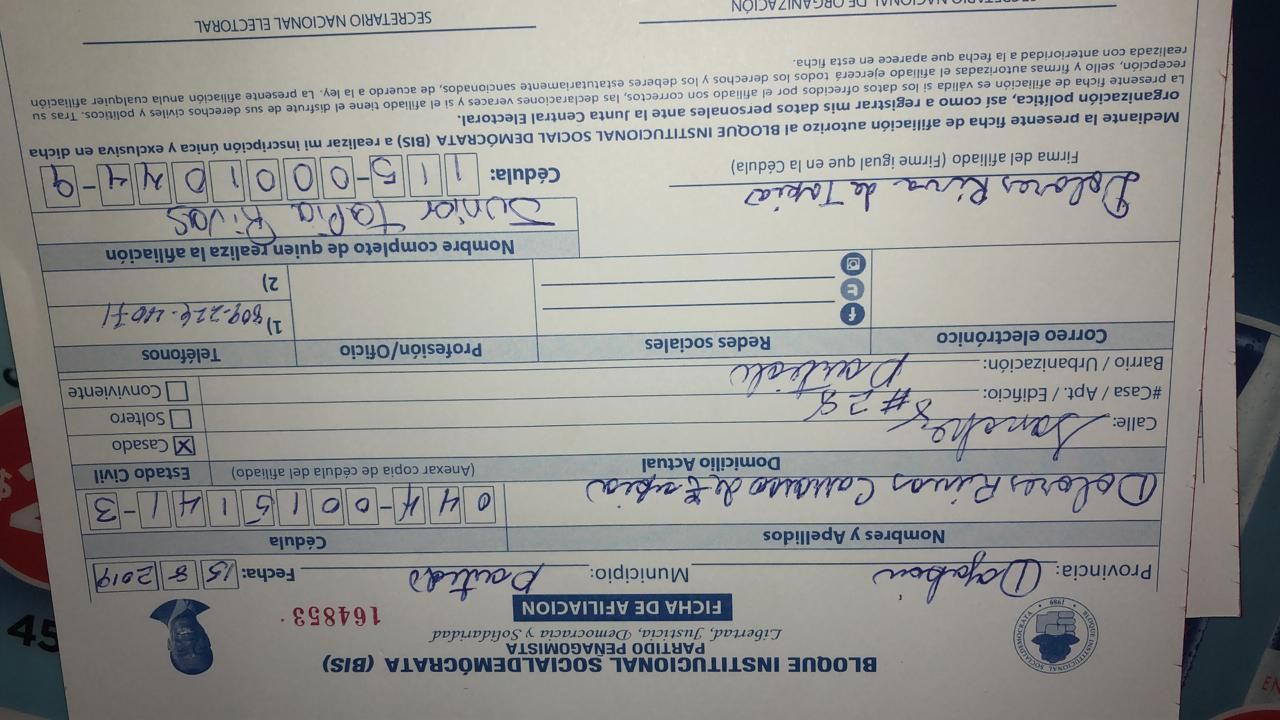 BLOQUE INSTITUCIONAL SOCIALDEMÓCRATA (BIS)
PARTIDO PEÑAGOMISTA
Libertad, Justicia, Democracia y Solidaridad
FICHA DE AFILIACION
164853
BLOQUE INSTITUCIONAL SOCIALDEMOCRATA
1989
Provincia: Dajabon Municipio: Partido Fecha: 15 8 2019
Nombres y Apellidos Cédula
Dolores Rivas Carrasco de Tapia 044-0015141-3
Domicilio Actual (Anexar copia de cédula del afiliado) Estado Civil
Calle: Sanchez Casado X
#Casa / Apt. / Edificio: #28 Soltero
Barrio / Urbanización: Partido Conviviente
Correo electrónico Redes sociales Profesión/Oficio Teléfonos
1) 809-224-4071
2)
Nombre completo de quien realiza la afiliación
Junior Tapia Rivas
Dolores Riva de Tapia
Firma del afiliado (Firme igual que en la Cédula)
Cédula: 115-0001044-9
Mediante la presente ficha de afiliación autorizo al BLOQUE INSTITUCIONAL SOCIAL DEMÓCRATA (BIS) a realizar mi inscripción única y exclusiva en dicha
organización política, así como a registrar mis datos personales ante la Junta Central Electoral.
La presente ficha de afiliación es válida si los datos ofrecidos por el afiliado son correctos, las declaraciones veraces y si el afiliado tiene el disfrute de sus derechos civiles y políticos. Tras su
recepción, sello y firmas autorizadas el afiliado ejercerá todos los derechos y los deberes estatutariamente sancionados, de acuerdo a la ley. La presente afiliación anula cualquier afiliación
realizada con anterioridad a la fecha que aparece en esta ficha.
SECRETARIO NACIONAL DE ORGANIZACIÓN SECRETARIO NACIONAL ELECTORAL
45